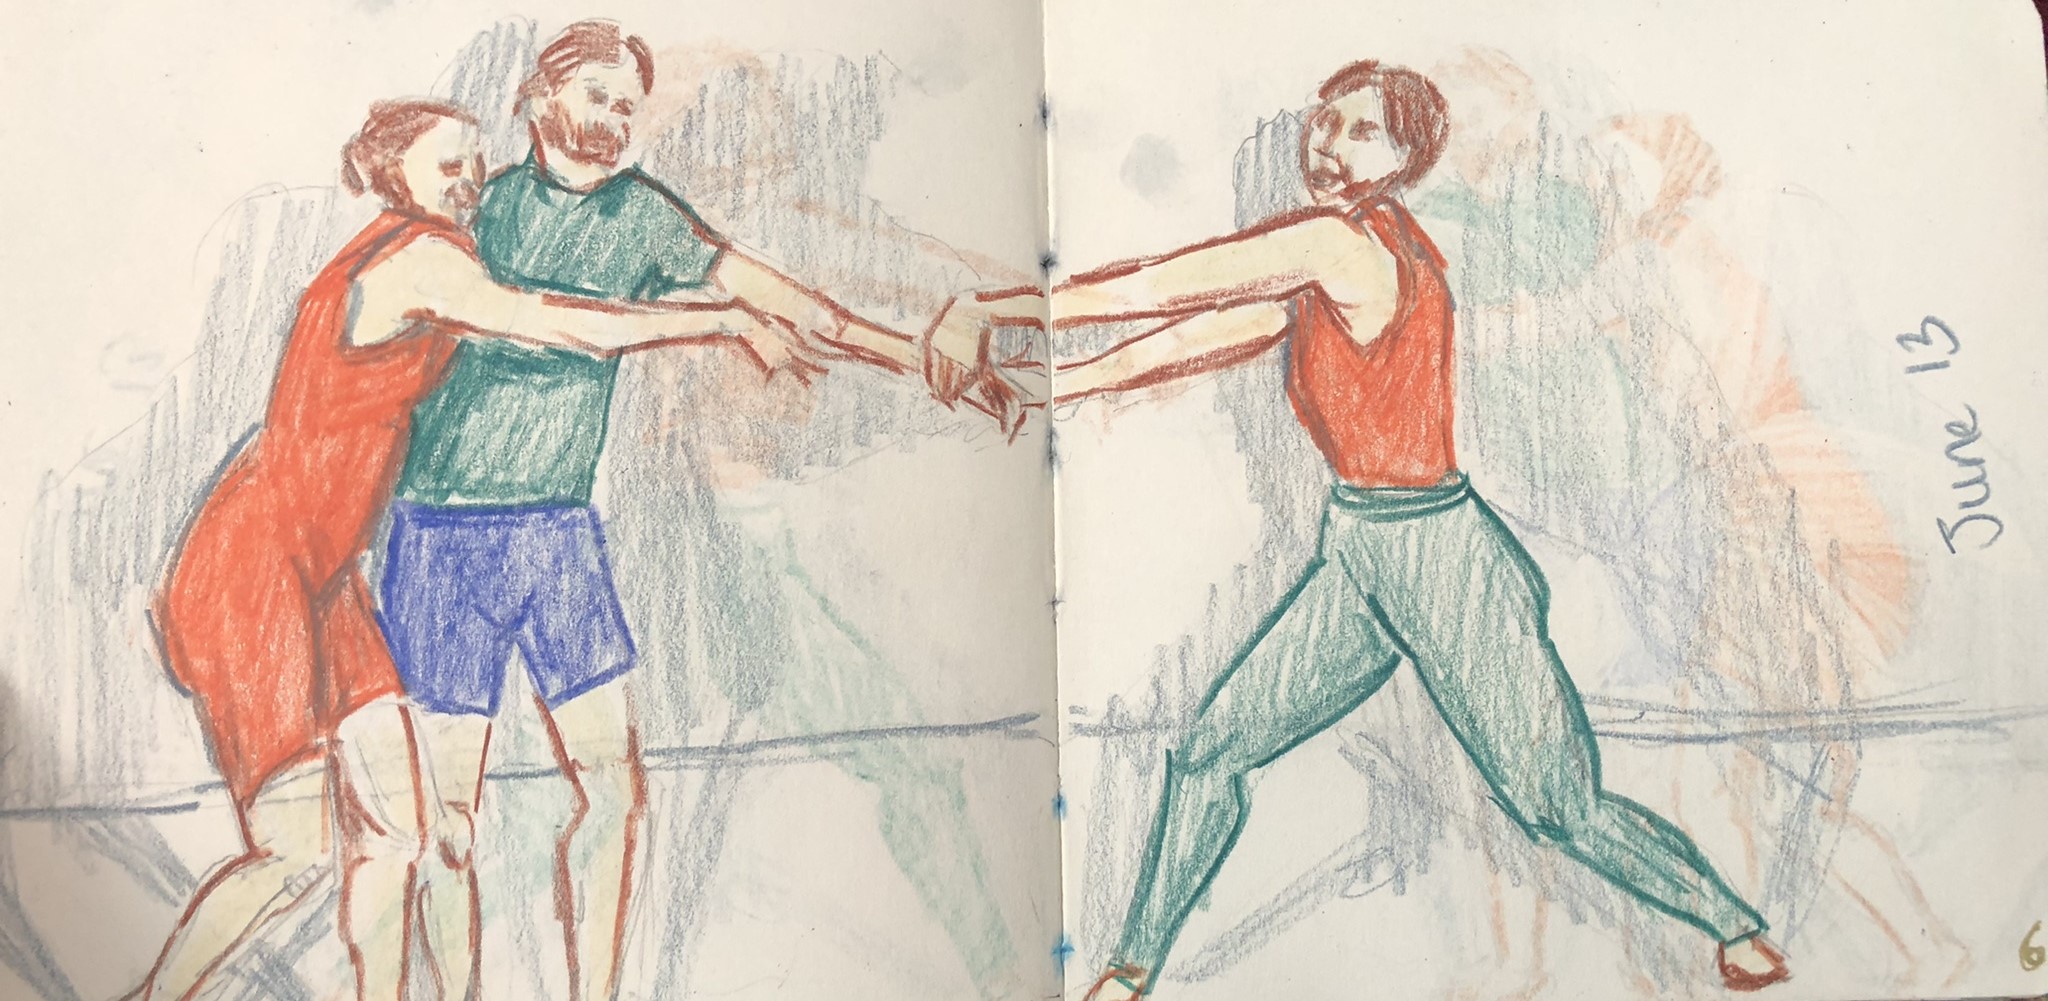 June 13
6